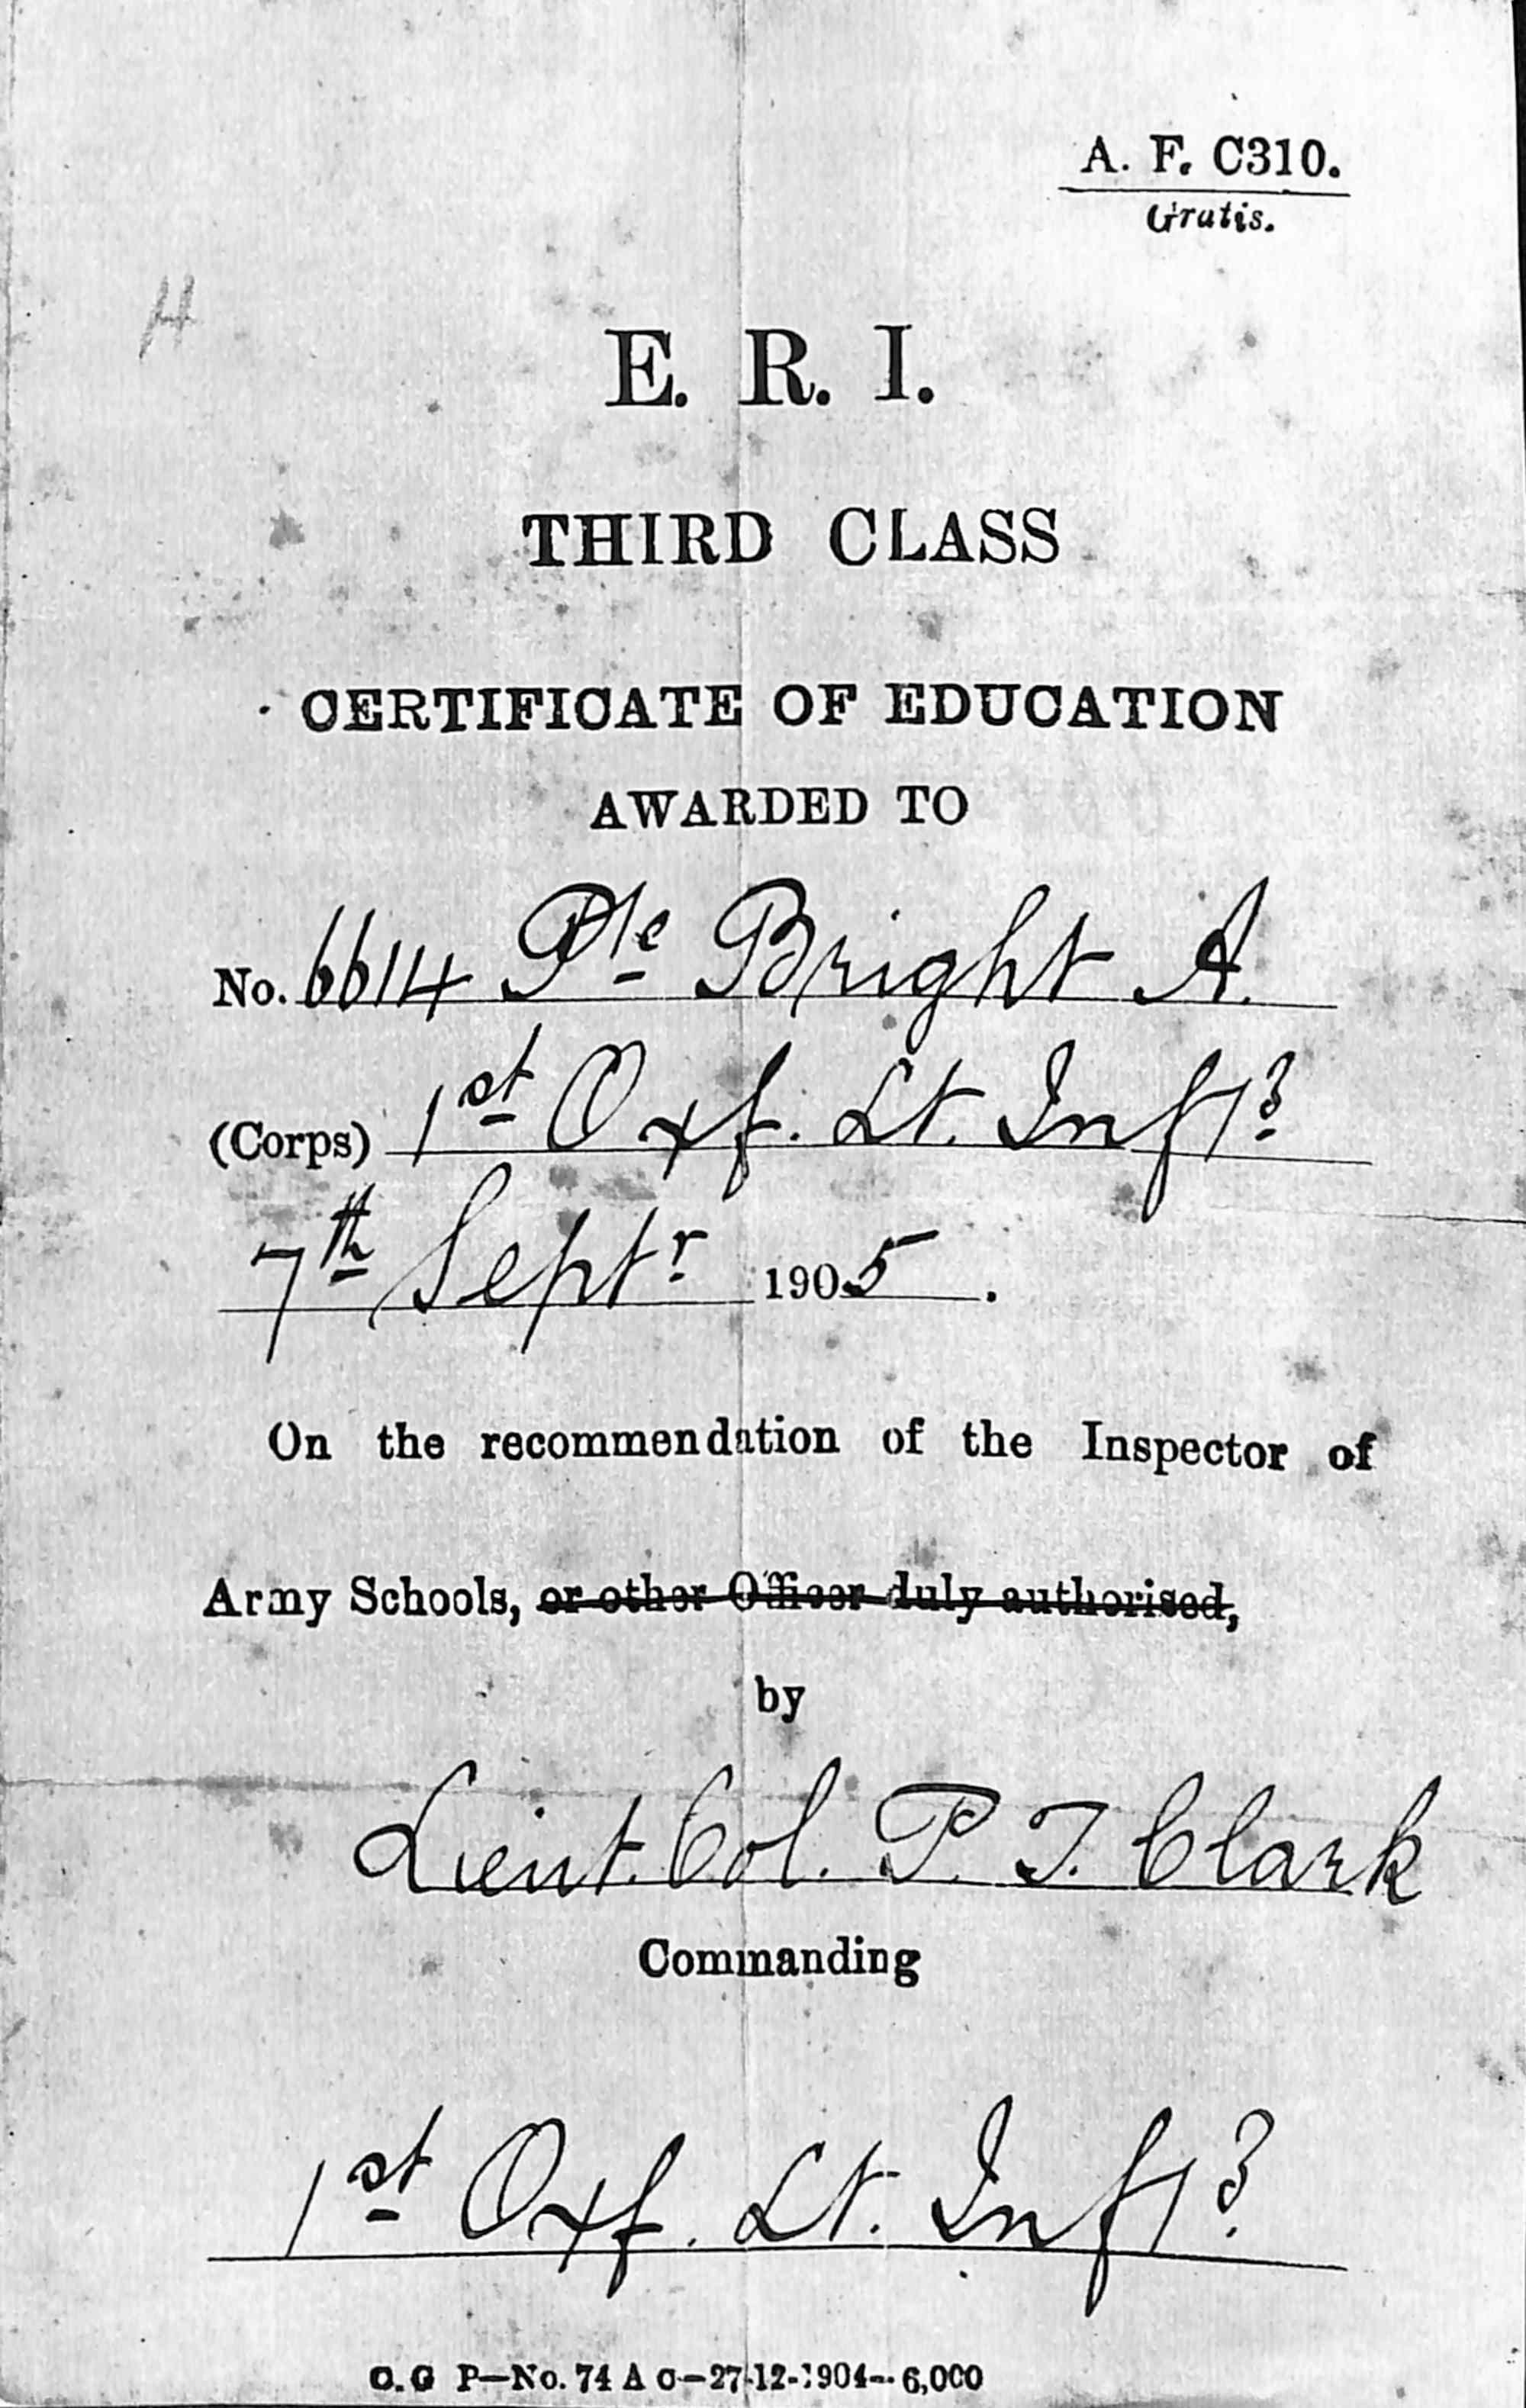 A. F. C310.
Gratis.
H
E. R. I.
THIRD CLASS
CERTIFICATE OF EDUCATION
AWARDED TO
No. 6614 Pte Bright A.
(Corps) 1st Oxf. Lt. Inf1y
7th Septr 1905.
On the recommendation of the Inspector of
Army Schools, or other Officer duly authorised,
by
Lieut. Col. P. T. Clark
Commanding
1st Oxf. Lt. Inf1y
C. G P—No. 74 A G—27-12-1904—6,000